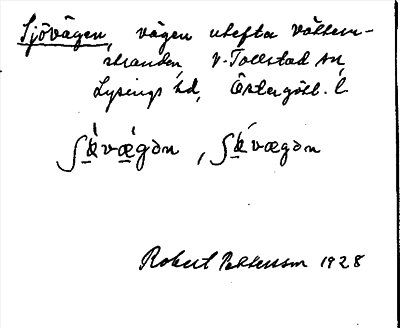 Sjövägen, vägen utefter Vättern-
stranden, V. Tollstad sn,
Lysings hd, Östergötl. l.
Robert Pettersson 1928